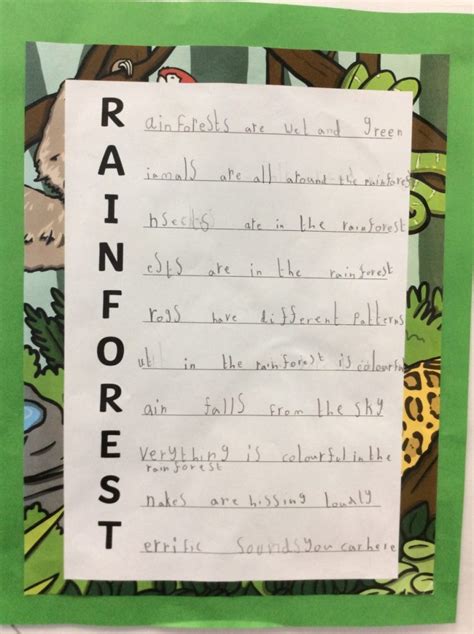 Rainforests are wet and green
Animals are all around the rainforest
Insects are in the rainforest
Nests are in the rainforest
Frogs have different Patterns
Out in the rainforest is colourful
Rain falls from the sky
Everything is colourful in the
rainforest
Snakes are hissing loudly
Terrific Sounds you can here